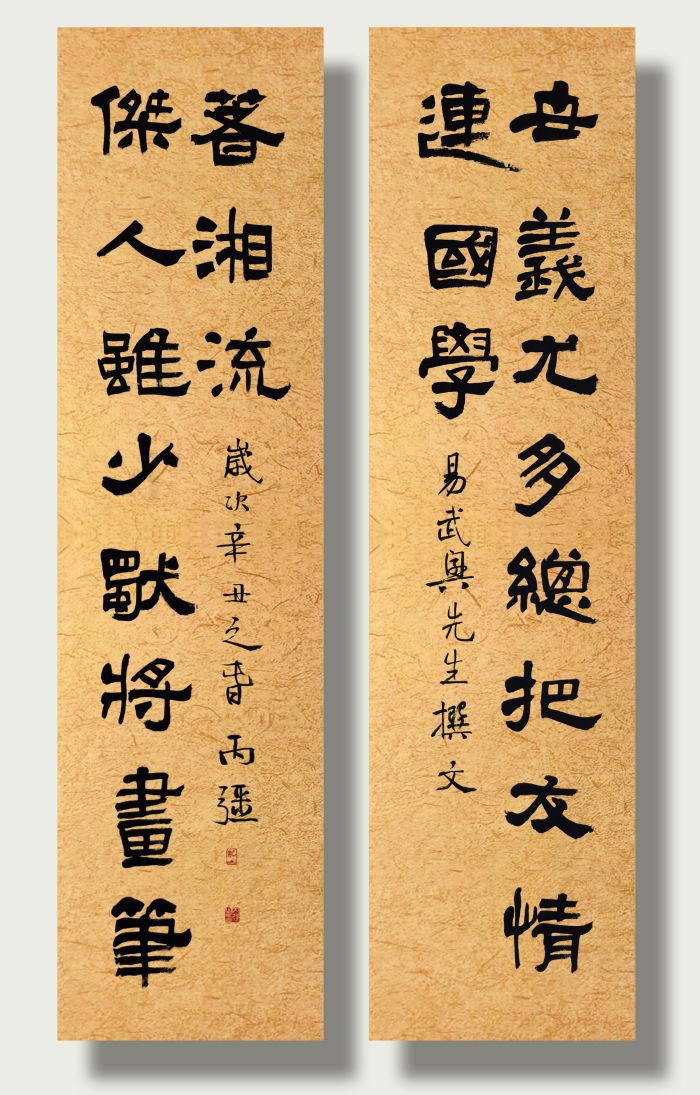 世義尤多總把友情
連國學
易武興先生撰文
傑人雖少獨將畫筆
著湘流
歲次辛丑之春丙彊